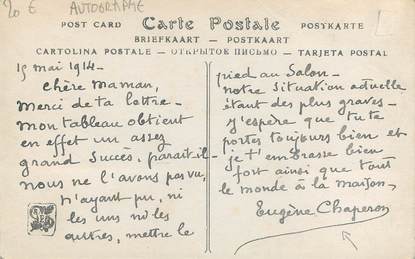 20 € AUTOGRAPHE
POST CARD Carte Postale POSTKARTE
BRIEFKAART — POSTKAART
CARTOLINA POSTALE — ОТКРЫТОЕ ПИСЬМО — TARJETA POSTAL
15 mai 1914 —
Chère Maman,
Merci de ta lettre —
mon tableau obtient
en effet un assez
grand Succès, parait-il —
nous ne l'avons pas vu,
n'ayant pu, ni
les uns ni les
autres, mettre le
pied au Salon —
notre Situation actuelle
étant des plus graves —
J'espère que tu te
portes toujours bien et
je t'embrasse bien
fort ainsi que tout
le monde à la maison —
Eugène Chaperon